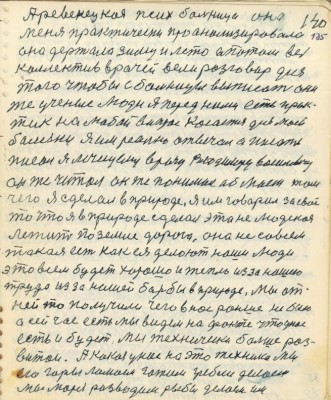 Аревенецкая псих болница она 120
меня практически проанализировала 135
она держала зиму и лето а потом вех
коллектив врачей вели розговар для
того чтобы с болницы выписать они
же ученые люди я перед ними есть прак
тик на любой вапрос касается для моей
болезни я им реално отвечал а писать
писал я лечащему врачу
он же читал он же понимае об маем том
чего я сделал в природе, я им говорил за свой
то что я в природе сделал эта не людская
лежить по земле дорога, она не совсем
такая есть как ея делоют наши люди
это всем будет хорошо и тепло из за нашего
труда из за нашей барбы в природе. Мы от-
ней то получили чего в нас раньше не было
а сейчас есть мы видим на факте что у нас
есть и будет. Мы технически болше роз-
виты. А какая у нас на это техника мы
по горы ламаем тонели гребли делаем
мы моря розводим рыбы делаем им